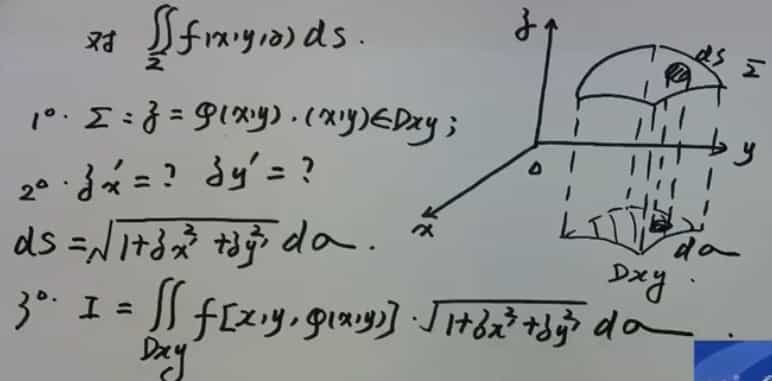 对 ∬_Σ f(x,y,z) ds.
1°. Σ: z = φ(x,y). (x,y)∈Dxy;
2°. z'x = ? z'y = ?
ds = √(1+z'x² + z'y²) dσ.
3°. I = ∬_Dxy f[x,y,φ(x,y)]·√(1+z'x²+z'y²) dσ.
z
ds Σ
y
0
x
dσ
Dxy.